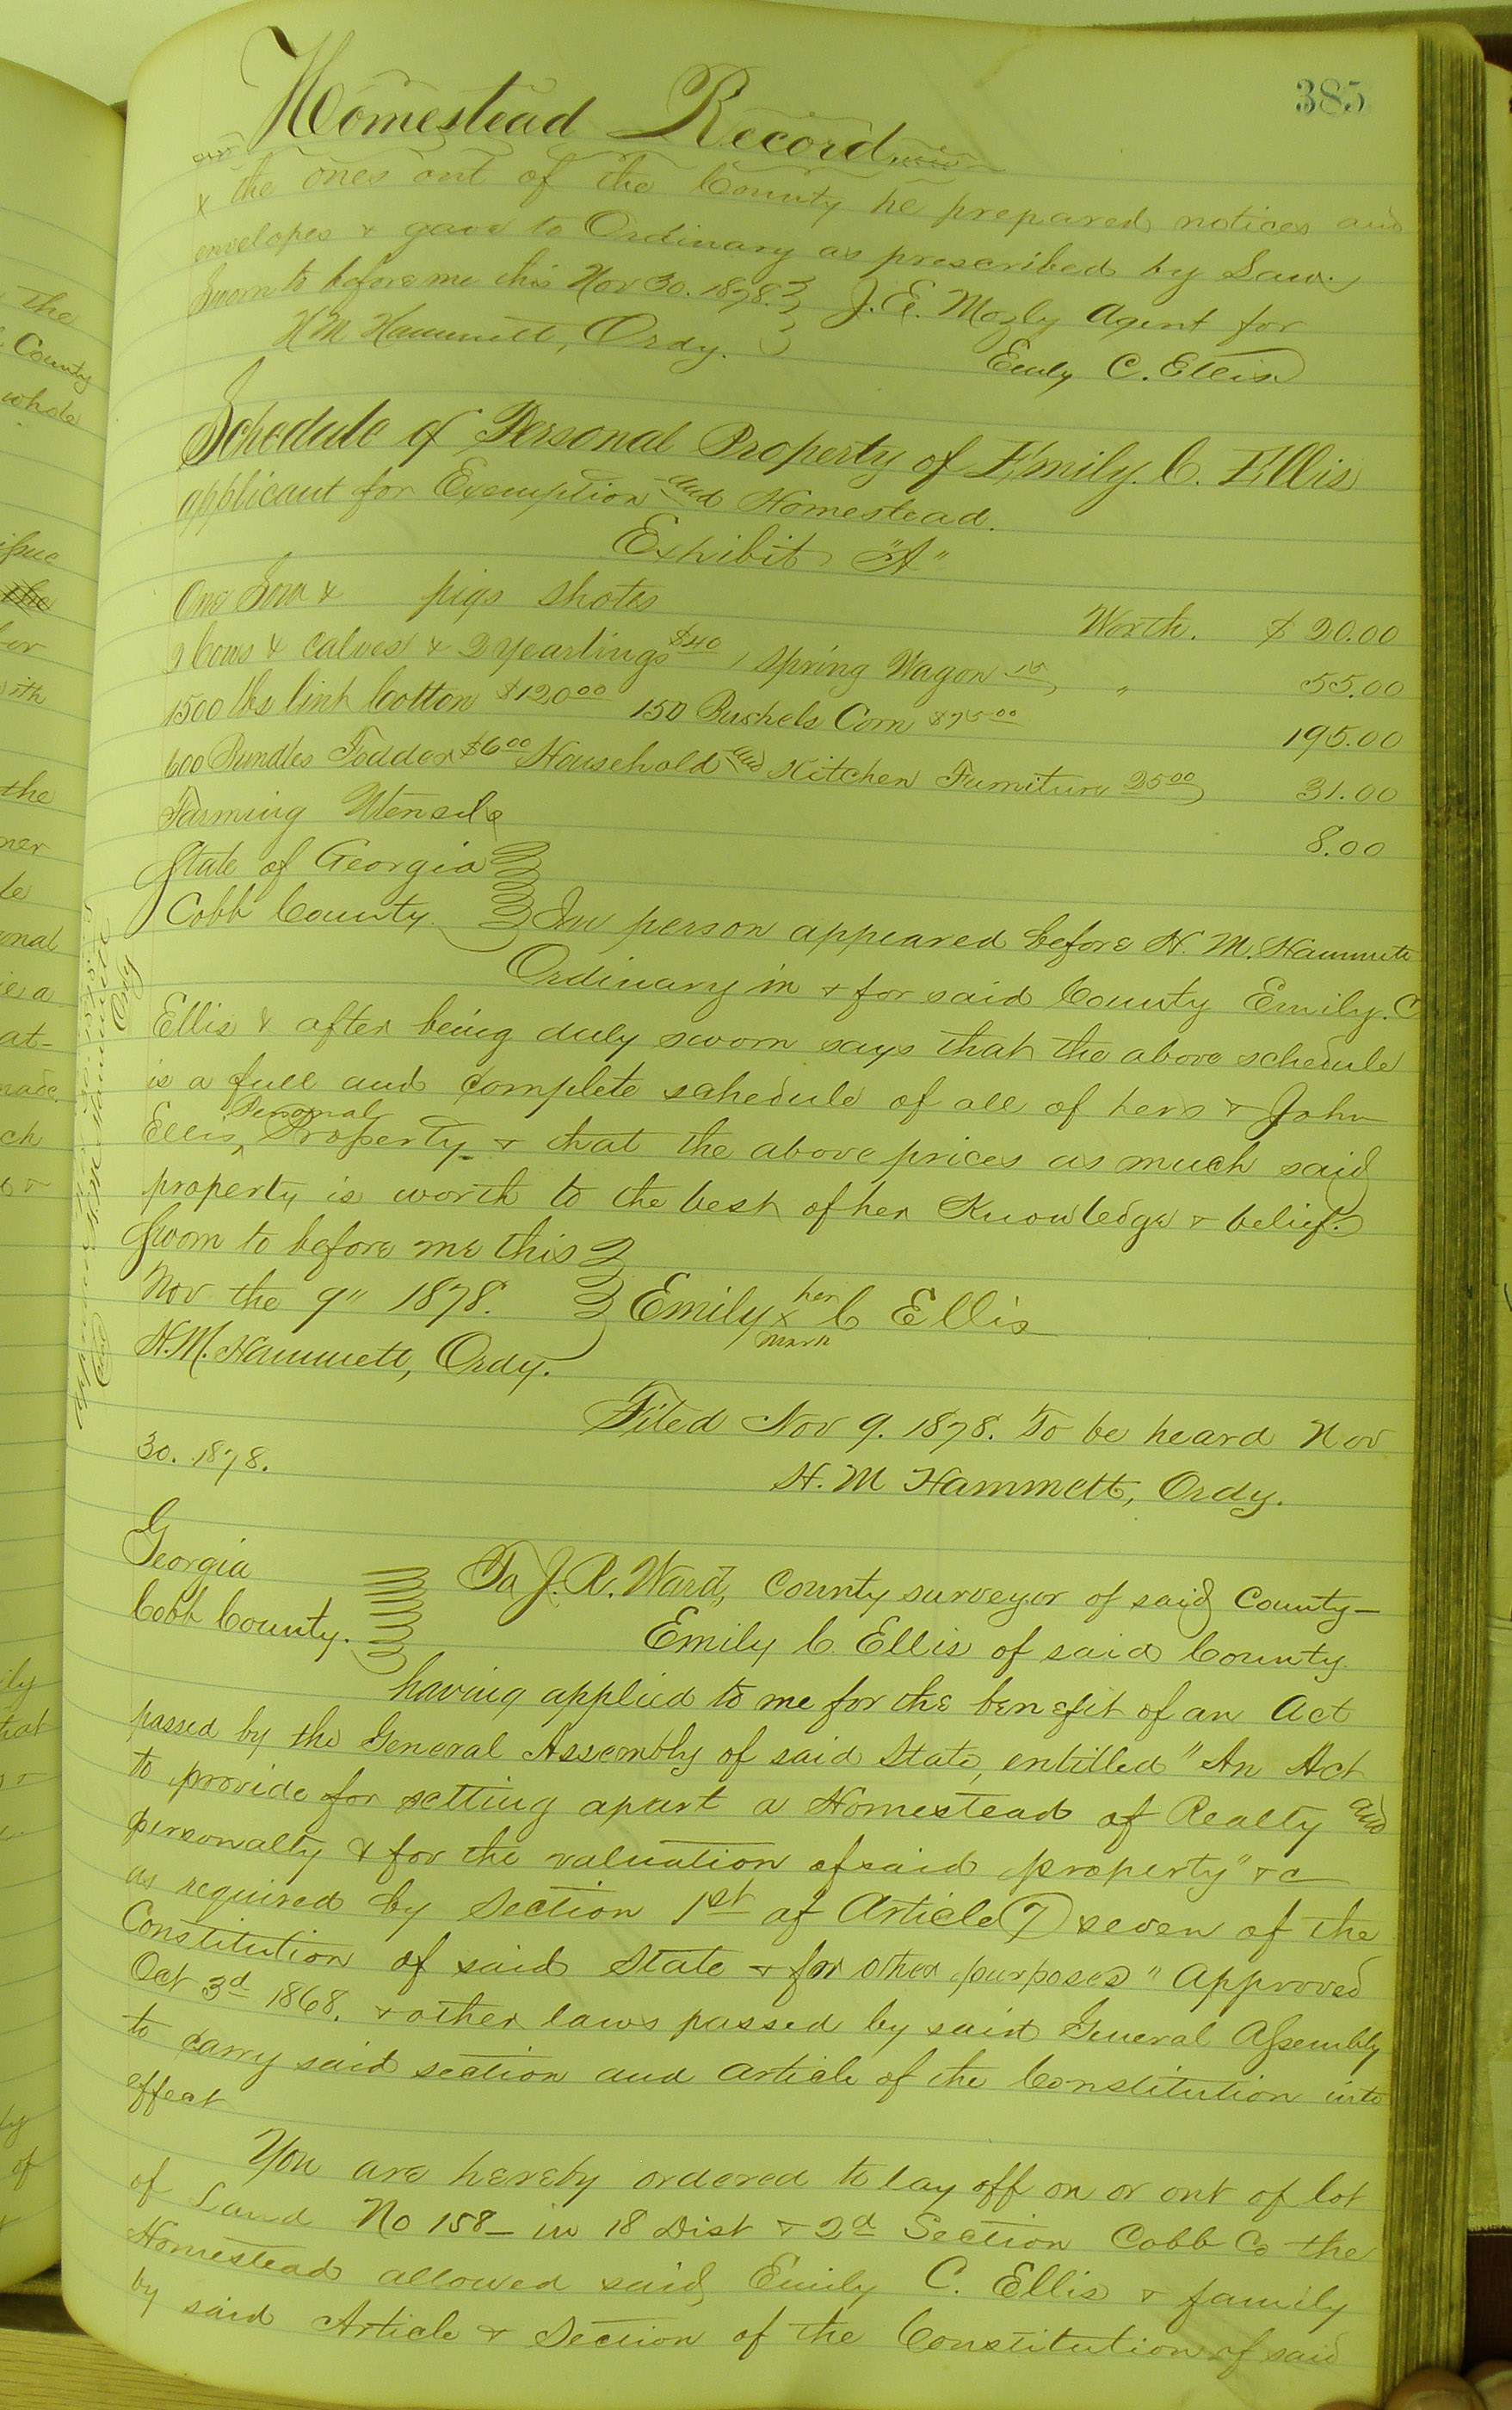 385
Homestead Record
& the ones out of the County he prepared notices and
envelopes & gave to Ordinary as prescribed by Law.
Sworn to before me this Nov 30. 1878. J. E. Mozly Agent for
H M Hammett, Ordy. Emily C. Ellis
Schedule of Personal Property of Emily. C. Ellis
applicant for Exemption and Homestead.
Exhibit "A"
One Sow & pigs Shotes Worth. $ 20.00
2 Cows & Calves & 2 yearlings $40 1 Spring Wagon 15 " 55.00
1500 lbs lint Cotton $120.00 150 Bushels Corn $75.00 195.00
600 Bundles Fodder $6.00 Household and Kitchen Furniture 25.00 31.00
Farming Utensils 8.00
State of Georgia
Cobb County. In person appeared before H. M. Hammett
Ordinary in & for said County Emily. C
Ellis & after being duly sworn says that the above schedule
is a full and complete schedule of all of hers & John
Ellis, Personal Property & that the above prices as much said
property is worth to the best of her Knowledge & belief.
Sworn to before me this
Nov the 9" 1878. Emily her x mark C Ellis
H. M. Hammett, Ordy.
Filed Nov 9. 1878. To be heard Nov
30. 1878.
H. M Hammett, Ordy.
Georgia
Cobb County. To J. R. Ward, County surveyor of said County—
Emily C. Ellis of said County
having applied to me for the benefit of an Act
passed by the General Assembly of said State, entitled "An Act
to provide for setting apart a Homestead of Realty and
personalty & for the valuation of said property" &c
as required by Section 1st of Article (7) seven of the
Constitution of said State & for other purposes" Approved
Oct 3d 1868. & other laws passed by said General Assembly
to carry said section and article of the Constitution into
effect
You are hereby ordered to lay off on or out of lot
of Land No 158— in 18 Dist & 2d Section Cobb Co the
Homestead allowed said Emily C. Ellis & family
by said Article & Section of the Constitution of said